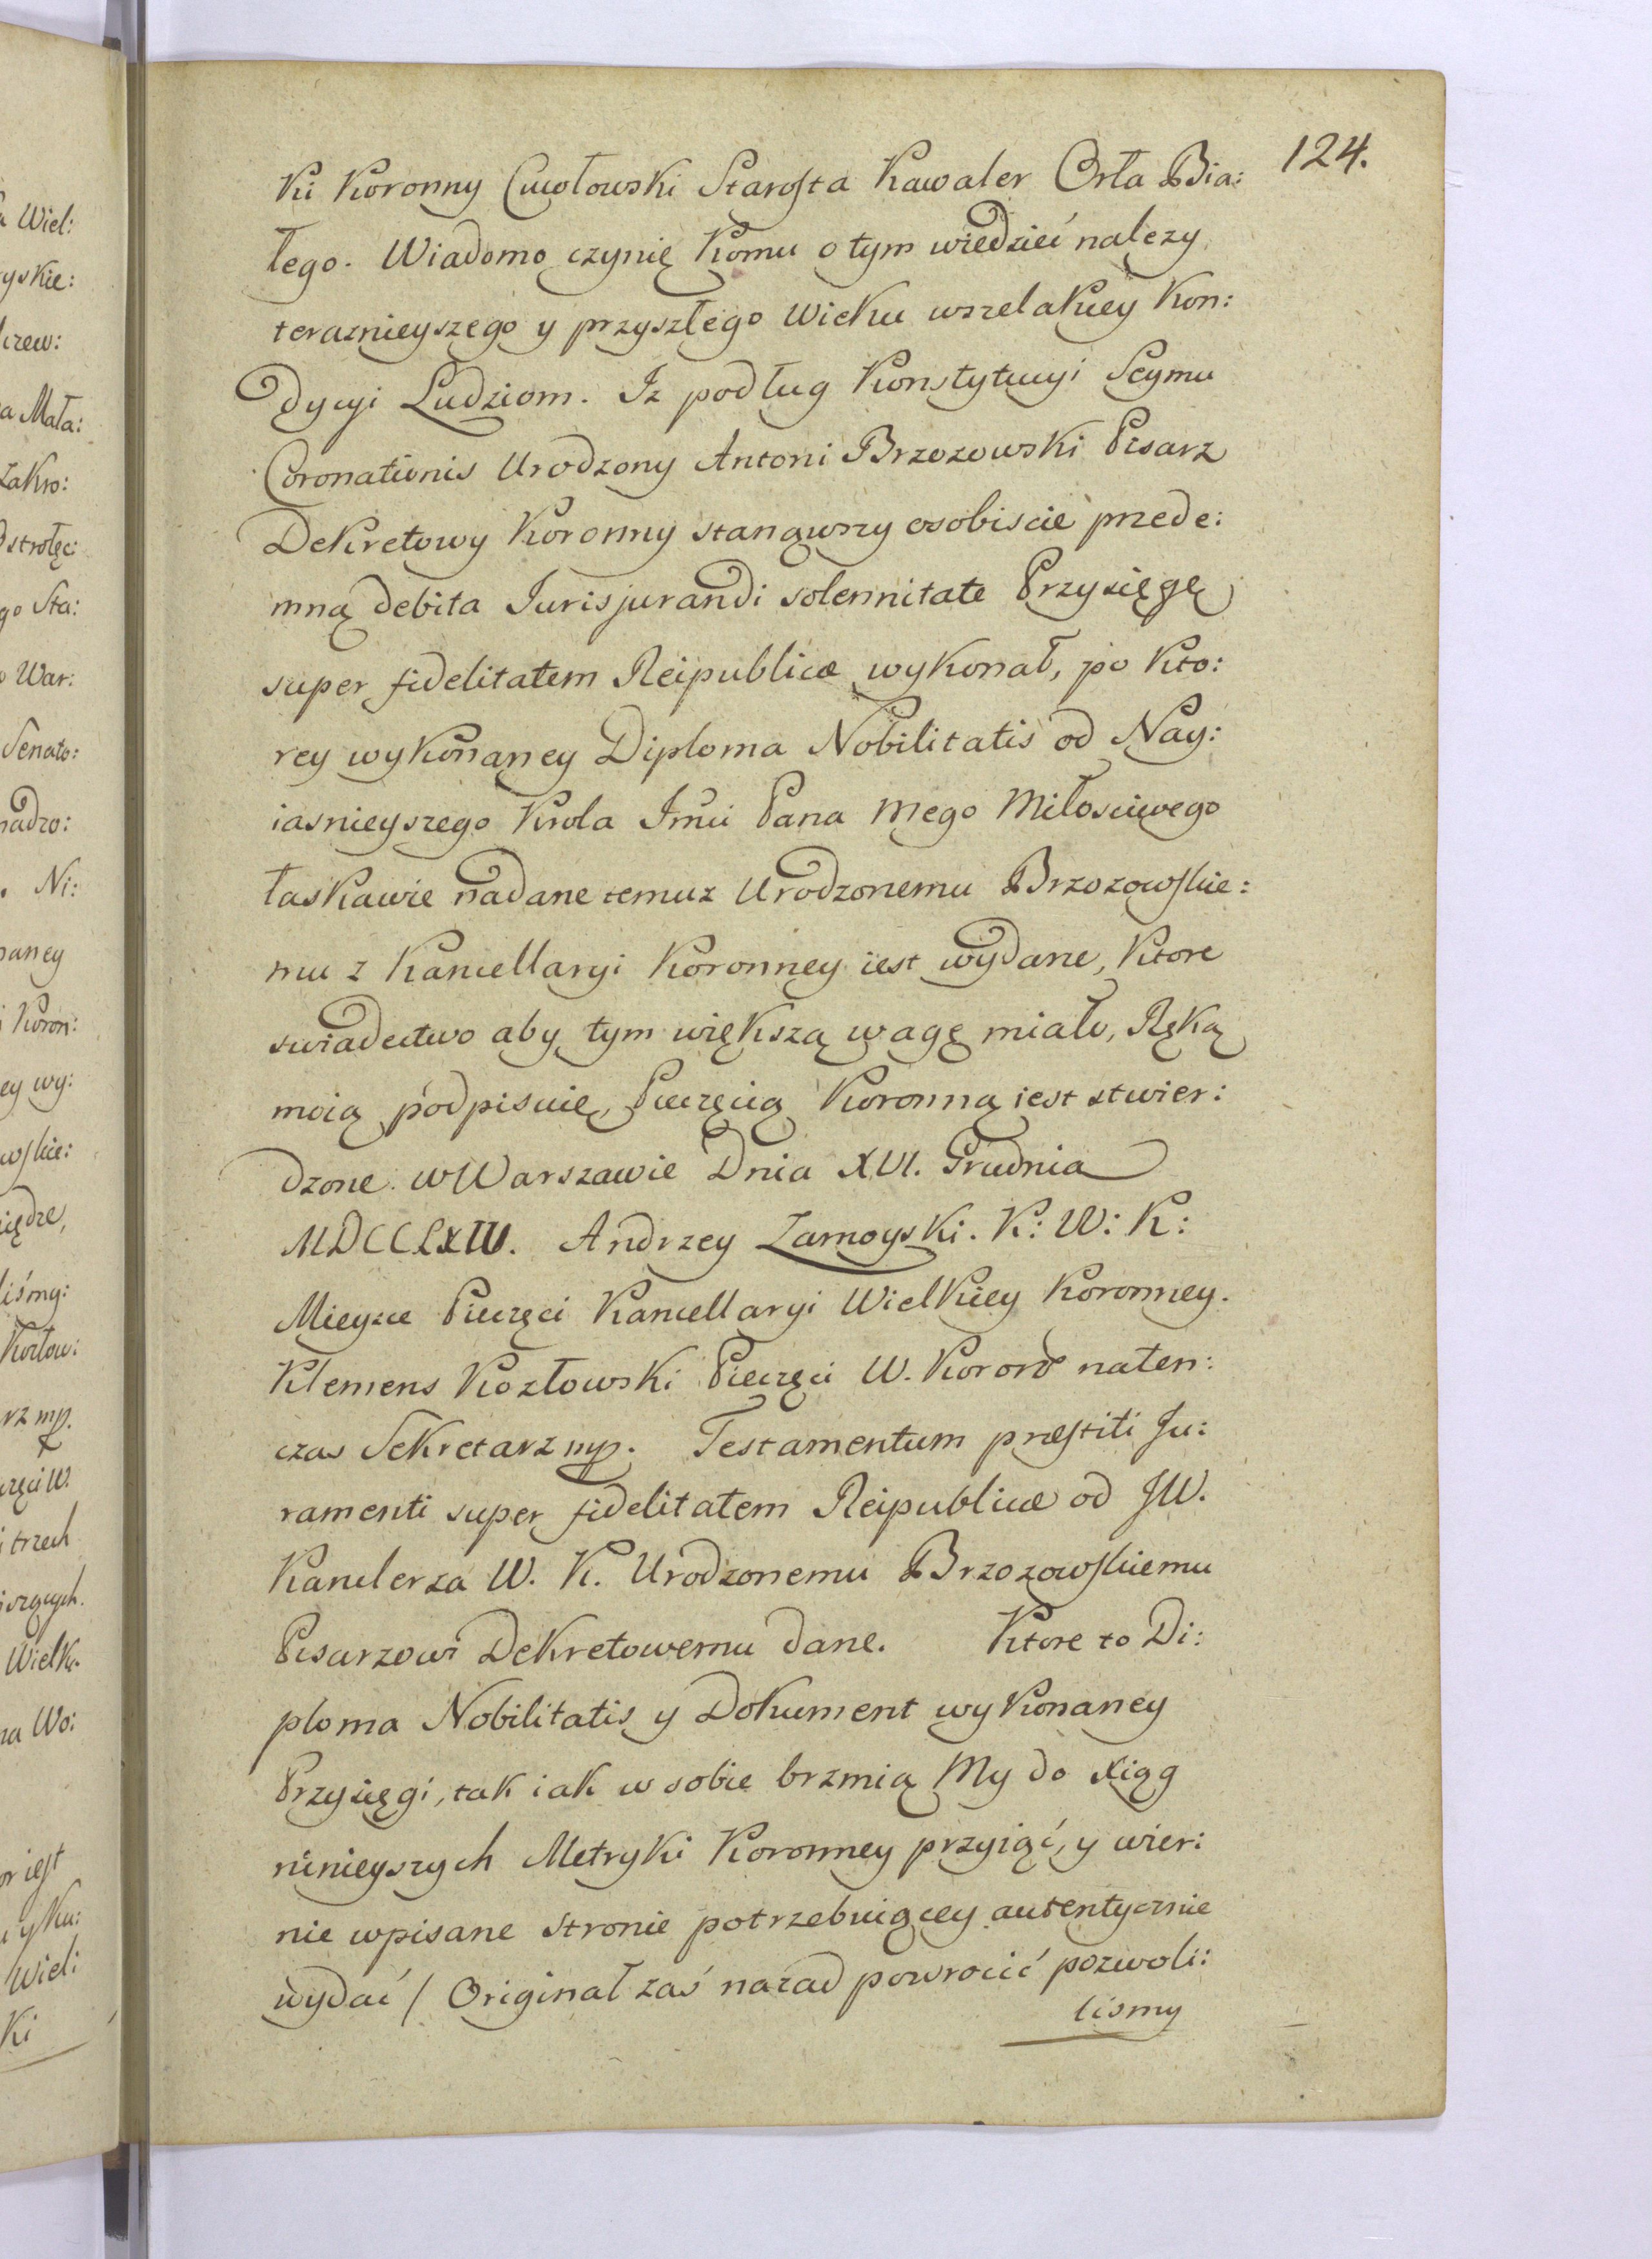 124.
Ki Koronny Cwołowski Starosta Kawaler Orła Bia:
łego. Wiadomo czynię Komu o tym wiedzieć nalezy
teraznieyszego y przyszłego Wieku wszelakiey Kon:
dycyi Ludziom. Iz podług Konstytucyi Seymu
Coronationis Urodzony Antoni Brzozowski Pisarz
Dekretowy Koronny stanąwszy osobiscie przede:
mną debita Jurisjurandi solennitate Przysięgę
super fidelitatem Reipublicæ wykonał, po Kto:
rey wykonaney Diploma Nobilitatis od Nay:
iasnieyszego Krola Jmci Pana Mego Miłosciwego
łaskawie nadane temuz Urodzonemu Brzozowskie:
mu z Kancellaryi Koronney iest wydane, Ktore
swiadectwo aby tym większą wagę miało, Ręką
moią podpisuię, Pieczęcią Koronną iest stwier:
dzone. w Warszawie Dnia XVI. Grudnia
MDCCLXIV. Andrzey Zamoyski. K: W: K:
Mieysce Pieczęci Kancellaryi Wielkiey Koronney.
Klemens Kozłowski Pieczęci W. Koron naten:
czas Sekretarz mp. Testamentum præstiti Ju:
ramenti super fidelitatem Reipublicæ od JW.
Kanclerza W. K. Urodzonemu Brzozowskiemu
Pisarzowi Dekretowemu dane. Ktore to Di:
ploma Nobilitatis y Dokument wykonaney
Przysięgi, tak iak w sobie brzmią My do Xiąg
ninieyszych Metryki Koronney przyiąć, y wier:
nie wpisane stronie potrzebuiącey autentycznie
wydać / Originał zaś nazad powrocić pozwoli:
lismy